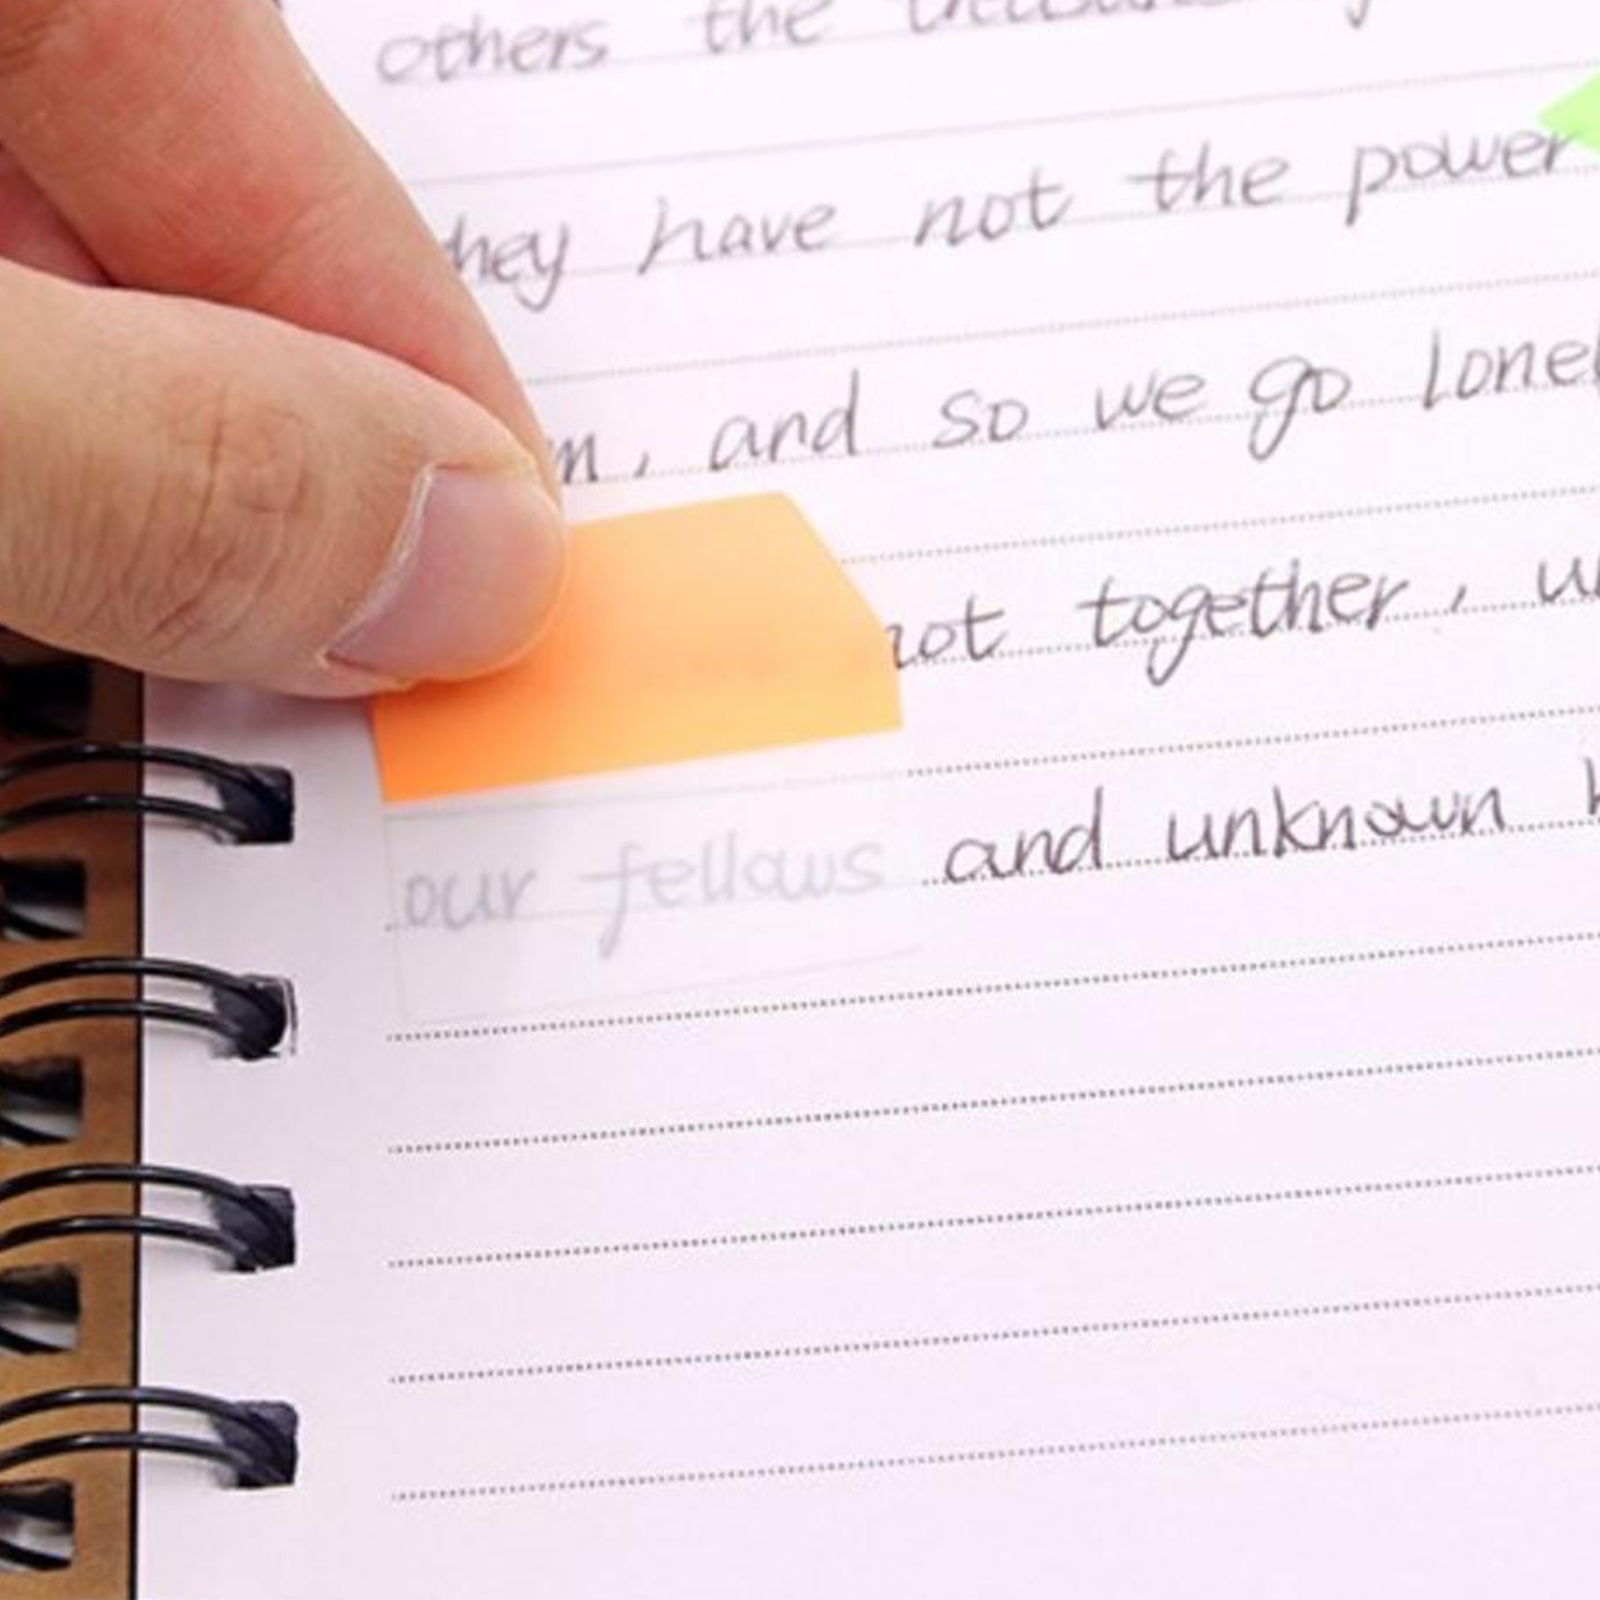 others the
hey have not the power
m, and so we go lonel
not together,
our fellows and unknown